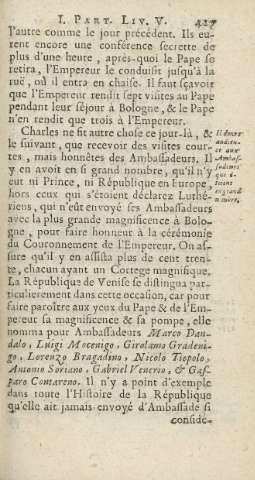 I. PART. LIV. V. 427
l'autre comme le jour précédent. Ils eu-
rent encore une conférence secrette de
plus d'une heure, aprés-quoi le Pape se
retira, l'Empereur le conduisit jusqu'à la
ruë, où il entra en chaise. Il faut sçavoir
que l'Empereur rendit sept visites au Pape
pendant leur séjour à Bologne, & le Pape
n'en rendit que trois à l'Empereur.
Charles ne fit autre chose ce jour-là, &
le suivant, que recevoir des visites cour-
tes, mais honnêtes des Ambassadeurs. Il
y en avoit en si grand nombre, qu'il n'y
eut ni Prince, ni République en Europe,
hors ceux qui s'étoient déclarez Luthé-
riens, qui n'eût envoyé ses Ambassadeurs
avec la plus grande magnificence à Bolo-
gne, pour faire honneur à la cérémonie
du Couronnement de l'Empereur. On as-
sure qu'il y en assista plus de cent tren-
te, chacun ayant un Cortege magnifique.
La République de Venise se distingua par-
ticulierement dans cette occasion, car pour
faire paroître aux yeux du Pape & de l'Em-
pereur sa magnificence & sa pompe, elle
nomma pour Ambassadeurs Marco Dan-
dalo, Luigi Mocenigo, Girolamo Gradeni-
go, Lorenzo Bragadino, Nicolo Tiopolo,
Antonio Soriano, Gabriel Venerio, & Gas-
paro Contareno. Il n'y a point d'exemple
dans toute l'Histoire de la République
qu'elle ait jamais envoyé d'Ambassade si
conside-
Il donne
audien-
ce aux
Ambas-
sadeurs
qui é-
toient
en grand
nombre.